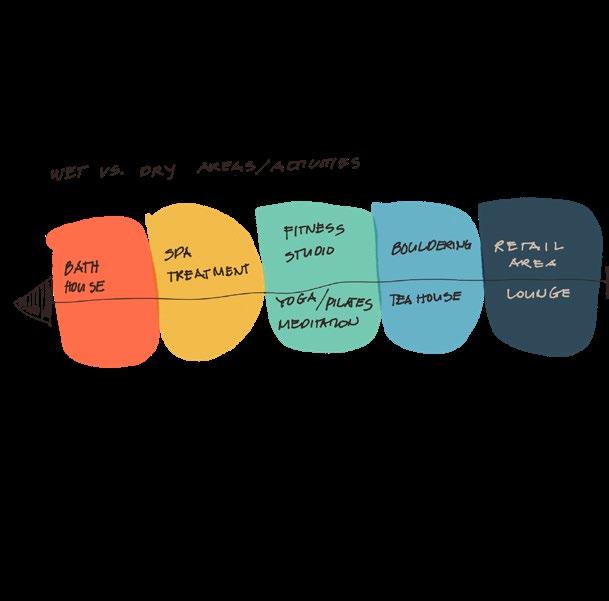 WET VS. DRY AREAS/ACTIVITIES
BATH
HOUSE
SPA
TREATMENT
FITNESS
STUDIO
YOGA/PILATES
MEDITATION
BOULDERING
TEA HOUSE
RETAIL
AREA
LOUNGE